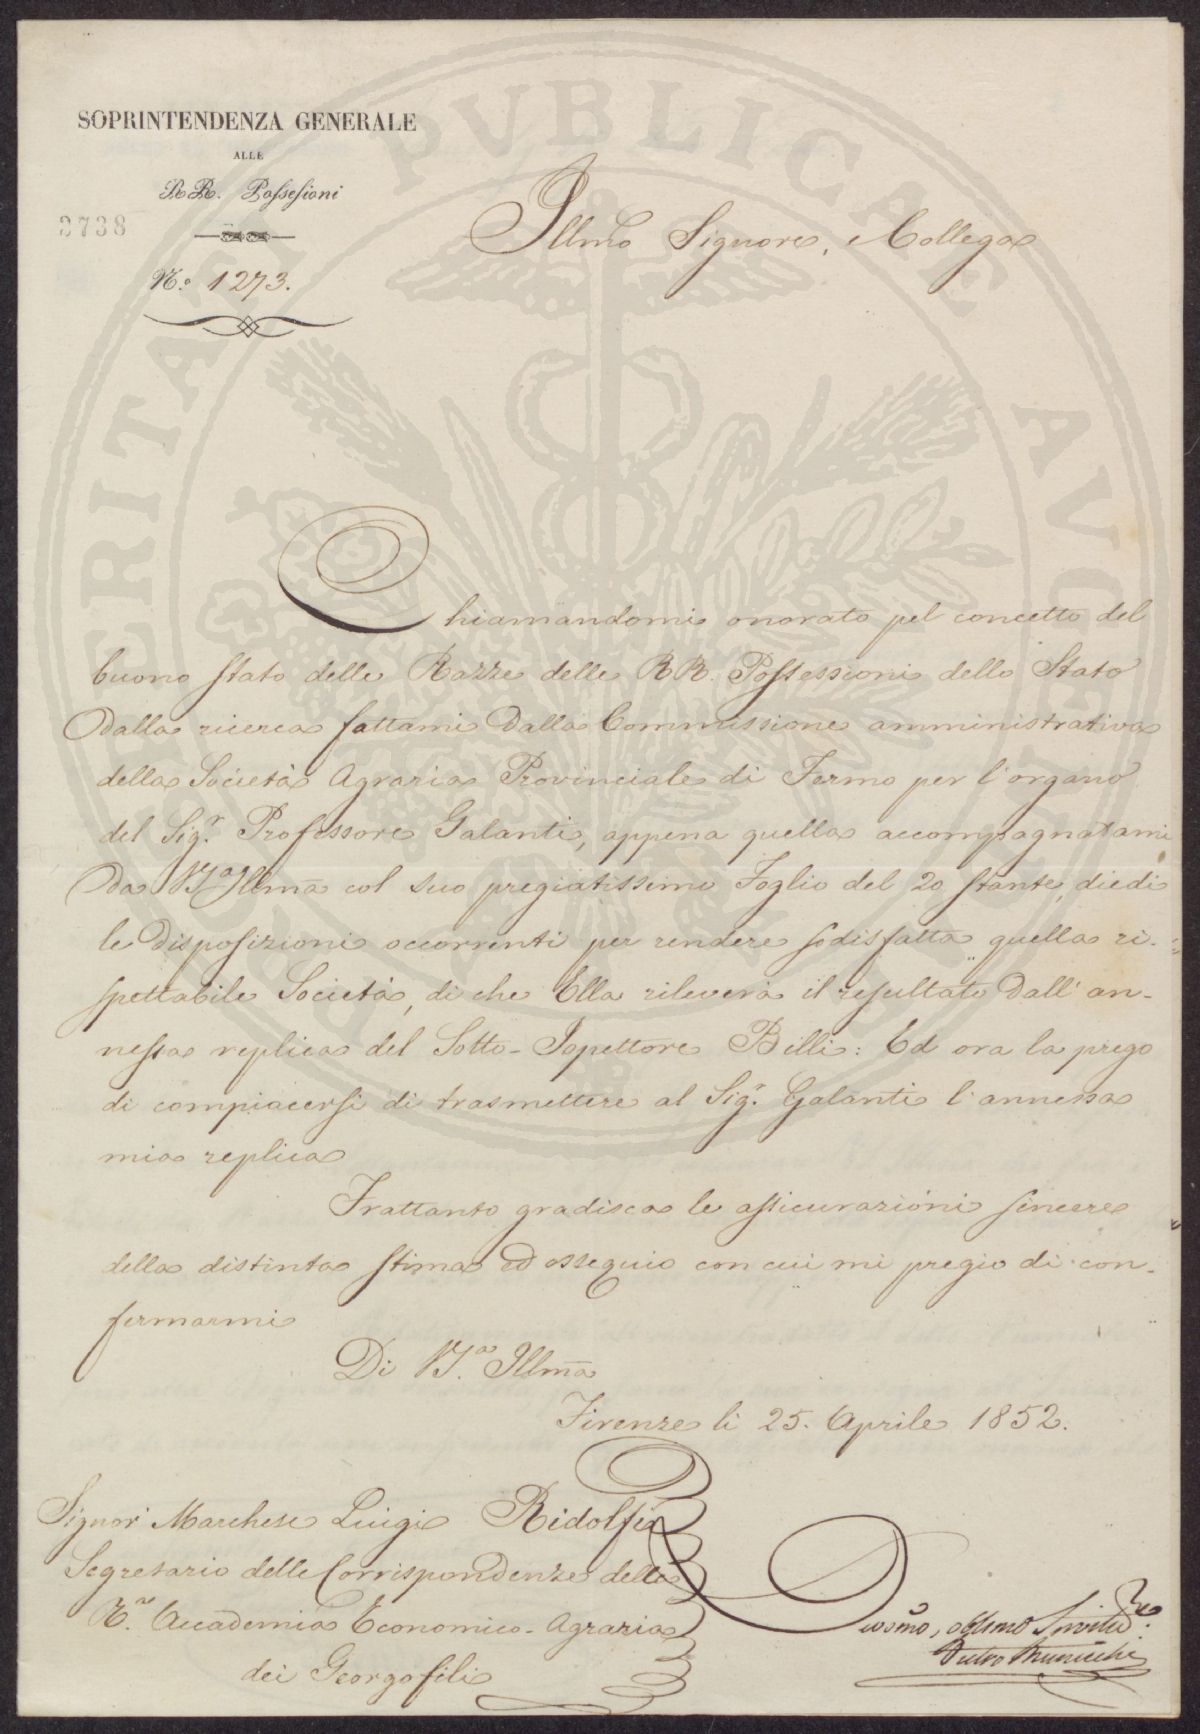 SOPRINTENDENZA GENERALE
ALLE
RR. Possessioni
3738
N.º 1273.
Illmo Signore, e Collega
Chiamandomi onorato pel concetto del
buono stato delle Razze delle RR. Possessioni dello Stato
dalla ricerca fattami dalla Commissione amministrativa
della Società Agraria Provinciale di Fermo per l'organo
del Sigr. Professore Galanti, appena quella accompagnatami
da V.S.a Illma col suo pregiatissimo Foglio del 20 stante, diedi
le disposizioni occorrenti per rendere sodisfatta quella ri-
spettabile Società, di che Ella rileverà il resultato dall'an-
nessa replica del Sotto-Ispettore Billi: Ed ora la prego
di compiacersi di trasmettere al Sigr. Galanti l'annessa
mia replica
Frattanto gradisca le assicurazioni sincere
della distinta stima ed ossequio con cui mi pregio di con-
fermarmi
Di V.S.a Illma
Firenze li 25. Aprile 1852.
Signor Marchese Luigi Ridolfi
Segretario delle Corrispondenze della
R.a Accademia Economico-Agraria
dei Georgofili
Devosmo, obbmo Servitore
Pietro Municchi
PUBLICAE